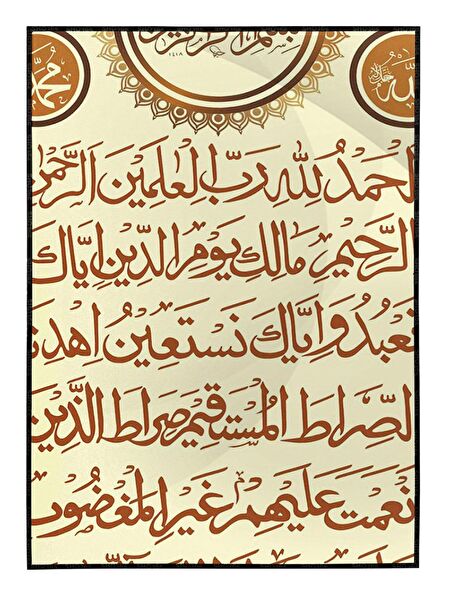 بسم الله الرحمن الرحيم
١٤١٨
الله جل جلاله
محمد
الحمد لله رب العلمين الرحمن
الرحيم مالك يوم الدين اياك
نعبد واياك نستعين اهدنا
الصراط المستقيم صراط الذين
انعمت عليهم غير المغضوب